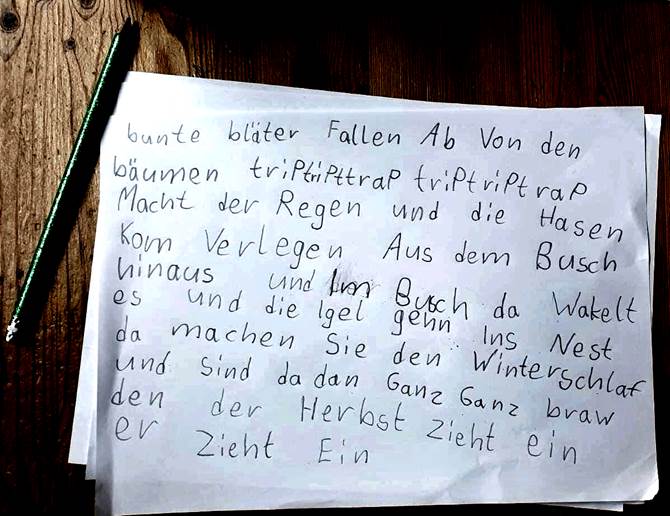 bunte bläter Fallen Ab Von den
bäumen triPtriPttraP triPtriPtraP
Macht der Regen und die Hasen
Kom Verlegen Aus dem Busch
hinaus und Im Busch da Wakelt
es und die Igel gehn Ins Nest
da machen Sie den Winterschlaf
und Sind da dan Ganz Ganz braw
den der Herbst Zieht ein
er Zieht Ein